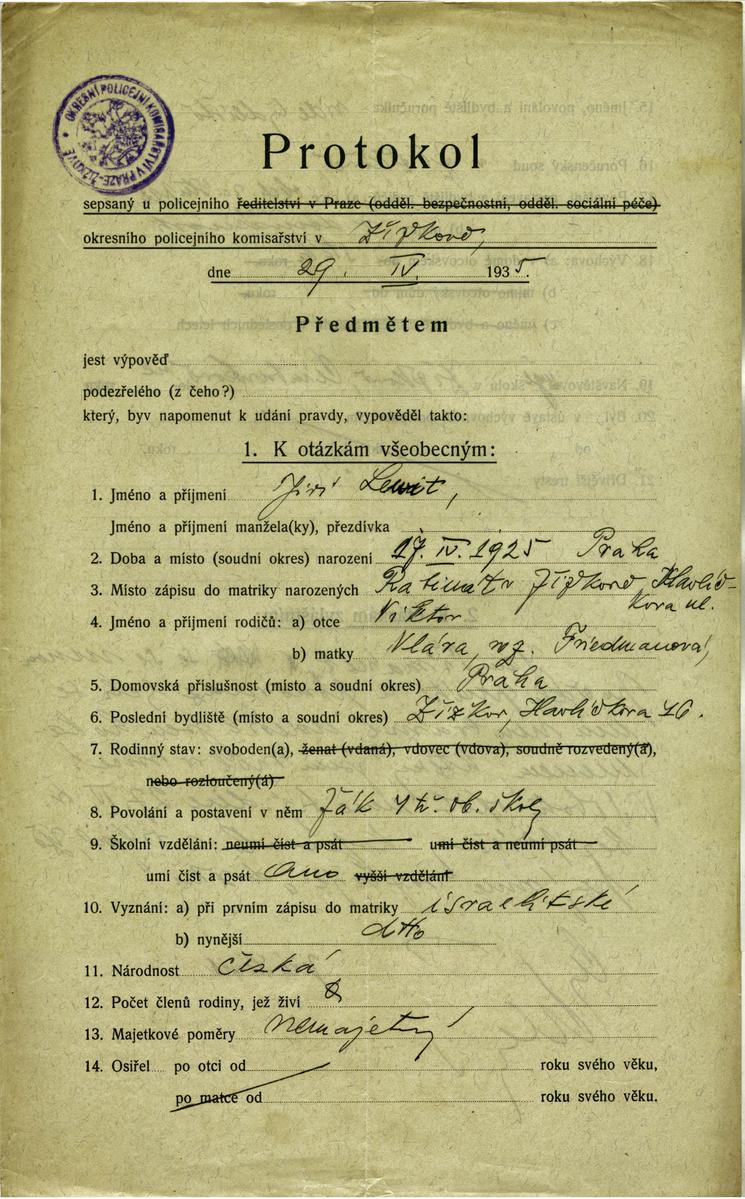 OKRESNÍ POLICEJNÍ KOMISAŘSTVÍ V PRAZE-ŽIŽKOVĚ
Protokol
sepsaný u policejního ředitelství v Praze (odděl. bezpečnostní, odděl. sociální péče)
okresního policejního komisařství v Žižkově,
dne 29. IV. 1935.
Předmětem
jest výpověď
podezřelého (z čeho?)
který, byv napomenut k udání pravdy, vypověděl takto:
1. K otázkám všeobecným:
1. Jméno a příjmení Jiří Lewit,
Jméno a příjmení manžela(ky), přezdívka
2. Doba a místo (soudní okres) narození 17. IV. 1925 Praha
3. Místo zápisu do matriky narozených Žižkov, Havlíč-
kova ul.
4. Jméno a příjmení rodičů: a) otce Viktor
b) matky Klára, roz. Friedmanová,
5. Domovská příslušnost (místo a soudní okres) Praha
6. Poslední bydliště (místo a soudní okres) Žižkov, Havlíčkova 16.
7. Rodinný stav: svoboden(a), ženat (vdaná), vdovec (vdova), soudně rozvedený(á),
nebo rozloučený(á)
8. Povolání a postavení v něm žák 4 tř. ob. školy
9. Školní vzdělání: neumí číst a psát umí číst a neumí psát
umí číst a psát ano vyšší vzdělání
10. Vyznání: a) při prvním zápisu do matriky israelitské
b) nynější dtto
11. Národnost česká
12. Počet členů rodiny, jež živí
13. Majetkové poměry nemajetný
14. Osiřel po otci od roku svého věku,
po matce od roku svého věku.